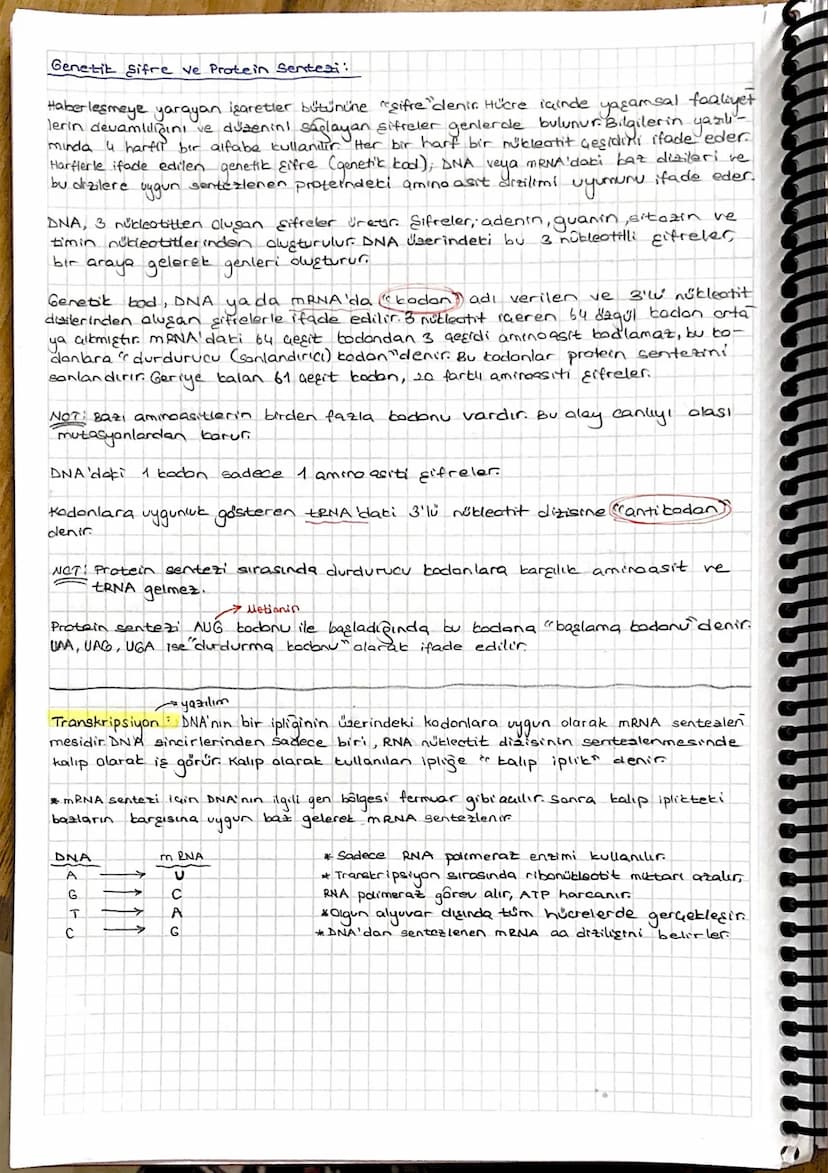 Genetik Şifre ve Protein Sentezi:
Haberleşmeye yarayan işaretler bütününe "şifre" denir. Hücre içinde yaşamsal faaliyet
lerin devamlılığını ve düzenini sağlayan şifreler genlerde bulunur. Bilgilerin yazılı-
mında 4 harfli bir alfabe kullanılır. Her bir harf bir nükleotit çeşidini ifade eder.
Harflerle ifade edilen genetik şifre (genetik kod); DNA veya mRNA'daki baz dizileri ve
bu dizilere uygun sentezlenen proteindeki amino asit dizilimi uyumunu ifade eder.
DNA, 3 nükleotitten oluşan şifreler üretir. Şifreler; adenin, guanin, sitozin ve
timin nükleotitlerinden oluşturulur. DNA üzerindeki bu 3 nükleotitli şifreler,
bir araya gelerek genleri oluşturur.
Genetik kod, DNA ya da mRNA'da "kodon" adı verilen ve 3'lü nükleotit
dizilerinden oluşan şifrelerle ifade edilir. 3 nükleotit içeren 64 özgül kodon orta
ya çıkmıştır. mRNA'daki 64 çeşit kodondan 3 çeşidi aminoasit kodlamaz, bu ko-
donlara "durdurucu (sonlandırıcı) kodon" denir. Bu kodonlar protein sentezini
sonlandırır. Geriye kalan 61 çeşit kodon, 20 farklı aminoasiti şifreler.
NOT: Bazı aminoasitlerin birden fazla kodonu vardır. Bu olay canlıyı olası
mutasyonlardan korur.
DNA'daki 1 kodon sadece 1 amino asiti şifreler.
Kodonlara uygunluk gösteren tRNA'daki 3'lü nükleotit dizisine "antikodon"
denir.
NOT: Protein sentezi sırasında durdurucu kodonlara karşılık aminoasit ve
tRNA gelmez.
→ Metionin
Protein sentezi AUG kodonu ile başladığında bu kodona "başlama kodonu" denir.
UAA, UAG, UGA ise "durdurma kodonu" olarak ifade edilir.
→ yazılım
Transkripsiyon: DNA'nın bir ipliğinin üzerindeki kodonlara uygun olarak mRNA sentezlen
mesidir. DNA zincirlerinden sadece biri, RNA nükleotit dizisinin sentezlenmesinde
kalıp olarak iş görür. Kalıp olarak kullanılan ipliğe "kalıp iplik" denir.
* mRNA sentezi için DNA'nın ilgili gen bölgesi fermuar gibi açılır. Sonra kalıp iplikteki
bazların karşısına uygun baz gelerek mRNA sentezlenir
DNA mRNA
A → U
G → C
T → A
C → G
* Sadece RNA polimeraz enzimi kullanılır.
* Transkripsiyon sırasında ribonükleotit miktarı azalır,
RNA polimeraz görev alır, ATP harcanır.
* Olgun alyuvar dışında tüm hücrelerde gerçekleşir.
* DNA'dan sentezlenen mRNA aa dizilişini belirler.